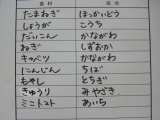 食材 産地
たまねぎ ほっかいどう
しょうが こうち
だいこん かながわ
ねぎ しずおか
キャベツ かながわ
にんじん ちば
もやし とちぎ
きゅうり みやざき
ミニトマト あいち